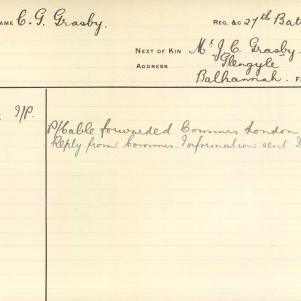 NAME C. G. Grasby. REG. &C 27th Bat
NEXT OF KIN Mr. J. C. Grasby.
ADDRESS Glengyle
Balhannah.
I/P.
P/Cable forwarded Commns London
Reply from Commns. Information sent